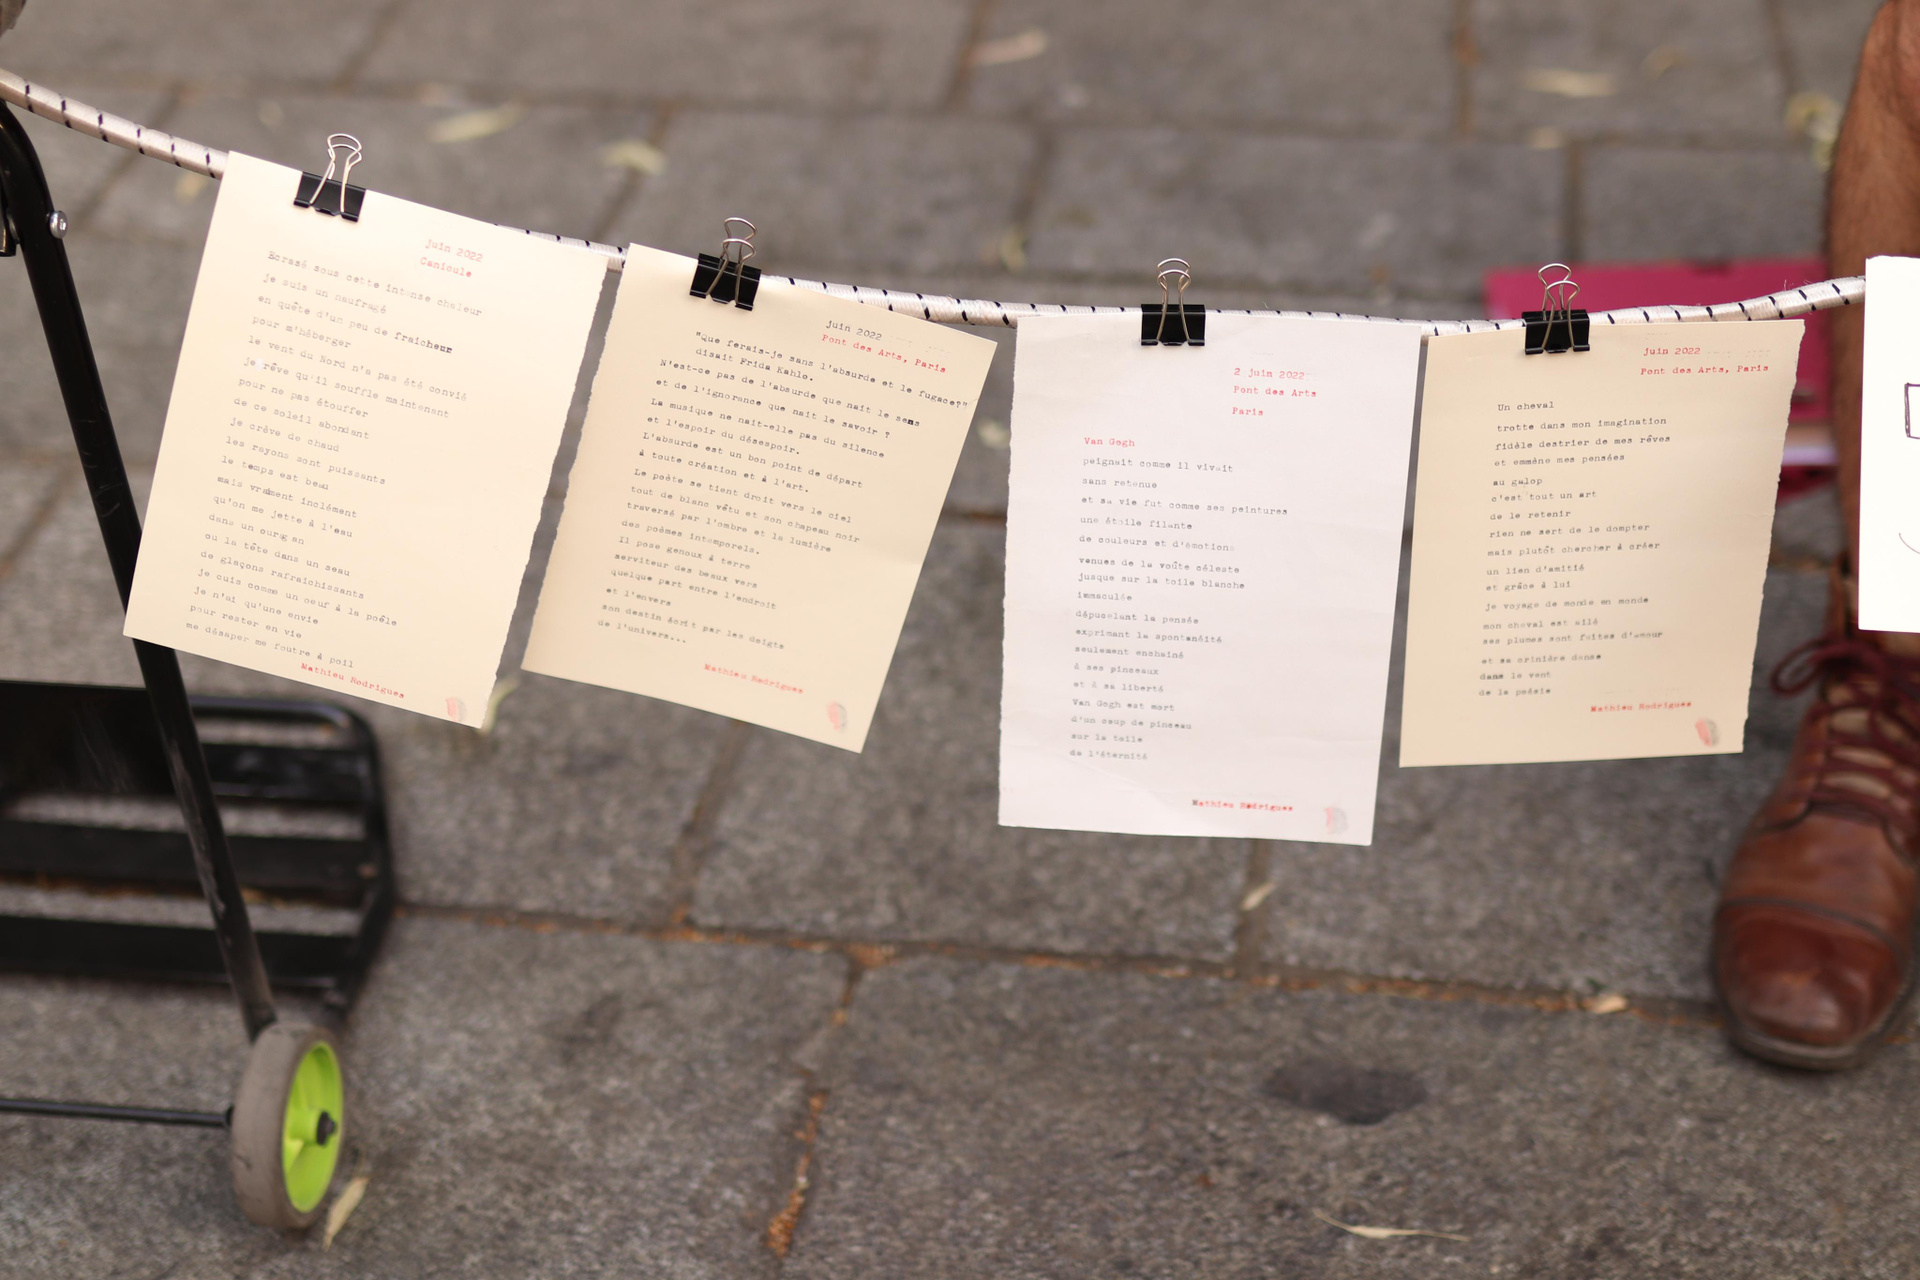 juin 2022
Canicule
Ecrasé sous cette intense chaleur
je suis un naufragé
en quête d'un peu de fraicheur
pour m'héberger
le vent du Nord n'a pas été convié
je rêve qu'il souffle maintenant
pour ne pas étouffer
de ce soleil abondant
je crève de chaud
les rayons sont puissants
le temps est beau
mais vraiment inclément
qu'on me jette à l'eau
dans un ourgan
ou la tête dans un seau
de glaçons rafraichissants
je cuis comme un oeuf à la poêle
je n'ai qu'une envie
pour rester en vie
me désaper me foutre à poil
Mathieu Rodrigues
juin 2022
Pont des Arts, Paris
"Que ferais-je sans l'absurde et le fugace?"
disait Frida Kahlo.
N'est-ce pas de l'absurde que nait le sens
et de l'ignorance que nait le savoir ?
La musique ne nait-elle pas du silence
et l'espoir du désespoir.
L'absurde est un bon point de départ
à toute création et à l'art.
Le poète se tient droit vers le ciel
tout de blanc vêtu et son chapeau noir
traversé par l'ombre et la lumière
des poèmes intemporels.
Il pose genoux à terre
serviteur des beaux vers
quelque part entre l'endroit
et l'envers
son destin écrit par les doigts
de l'univers...
Mathieu Rodrigues
2 juin 2022
Pont des Arts
Paris
Van Gogh
peignait comme il vivait
sans retenue
et sa vie fut comme ses peintures
une étoile filante
de couleurs et d'émotions
venues de la voûte céleste
jusque sur la toile blanche
immaculée
dépuselant la pensée
exprimant la spontanéité
seulement enchainé
à ses pinceaux
et à sa liberté
Van Gogh est mort
d'un coup de pinceau
sur la toile
de l'éternité
Mathieu Rodrigues
juin 2022
Pont des Arts, Paris
Un cheval
trotte dans mon imagination
fidèle destrier de mes rêves
et emmène mes pensées
au galop
c'est tout un art
de le retenir
rien ne sert de le dompter
mais plutôt chercher à créer
un lien d'amitié
et grâce à lui
je voyage de monde en monde
mon cheval est ailé
ses plumes sont faites d'amour
et sa crinière danse
dans le vent
de la poésie
Mathieu Rodrigues